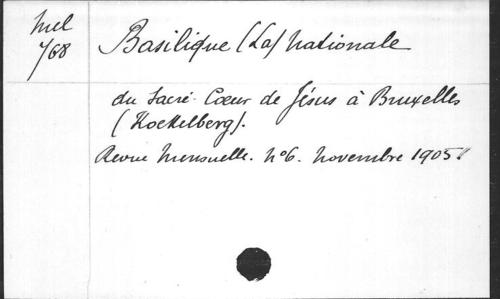 Mel
768
Basilique (La) Nationale
du Sacré-Cœur de Jésus à Bruxelles
(Kockelberg).
Revue Mensuelle. N°6. Novembre 1905